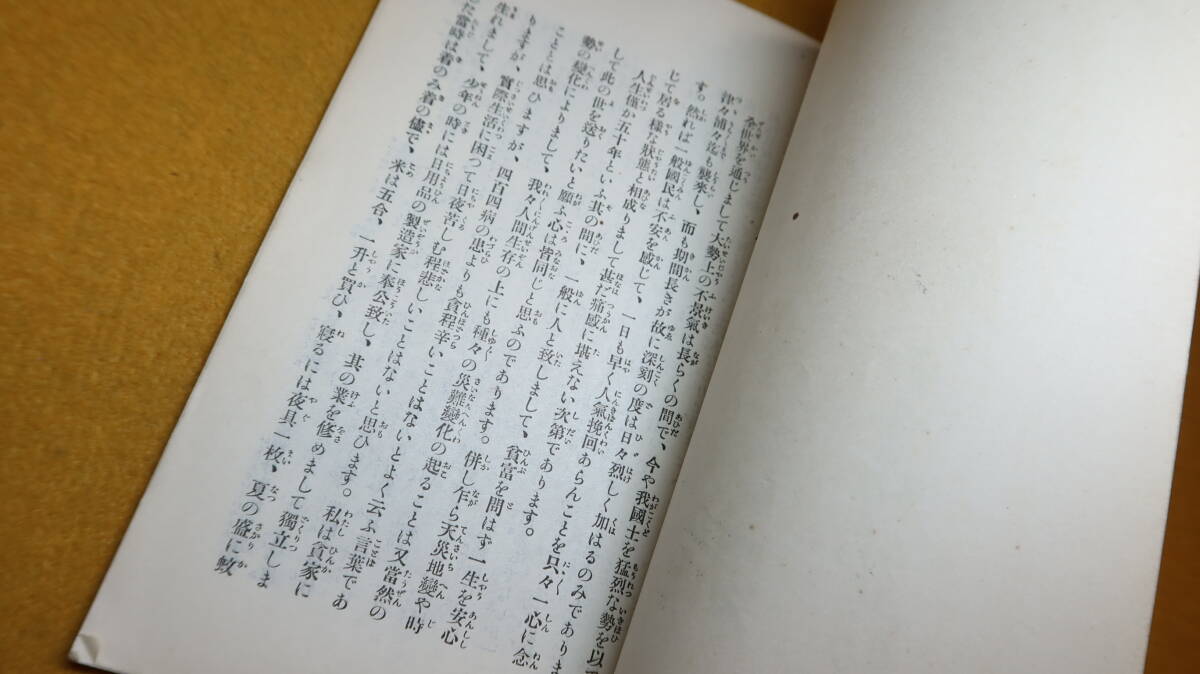 全世界を通じまして大勢上の不景氣は長らくの間で、今や我國土を猛烈な勢を以
津々浦々迄も襲來し、而も期間長きが故に深刻の度は日々烈しく加はるのみでありま
す。然れば一般國民は不安を感じて、一日も早く人氣挽回あらんことを只々一心に念
じて居る樣な狀態と相成りまして甚だ痛感に堪えない次第であります。
人生僅か五十年といふ其の間に、一般に人と致しまして、貧富を問はず一生を安心
して此の世を送りたいと願ふ心は皆同じと思ふのであります。併し乍ら天災地變や時
勢の變化によりまして、我々人間生存の上にも種々の災難變化の起ることは又當然の
こととは思ひますが、四百四病の患よりも貧程辛いことはないとよく云ふ言葉であ
りますが、實際生活に困つて日夜苦しむ程悲しいことはないと思ひます。私は貧家に
生れまして、少年の時には日用品の製造家に奉公致し、其の業を修めまして獨立しま
た當時は着のみ着の儘で、米は五合、一升と買ひ、寢るには夜具一枚、夏の盛に蚊